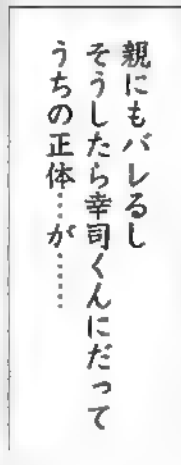 親にもバレるし
そうしたら幸司くんにだって
うちの正体…が……